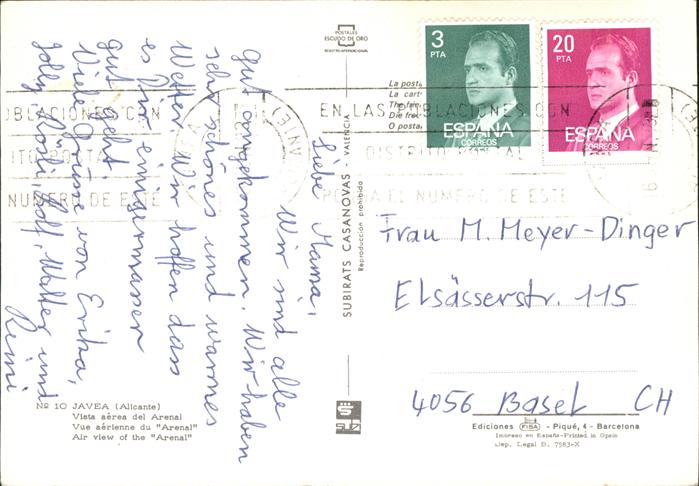 Liebe Mama,
Wir sind alle
gut angekommen. Wir haben
sehr schönes und warmes
Wetter. Wir hoffen dass
es Dir einigermassen
gut geht.
Viele Grüsse von Erika,
Rolf, Walter und
Remi
POSTALES
ESCUDO DE ORO
REGISTRO INTERNACIONAL
La posta
La cart
The fre
Die frei
O posta
SUBIRATS CASANOVAS - VALENCIA
Reproducción prohibida
3
PTA
ESPAÑA
CORREOS
20
PTA
ESPAÑA
CORREOS
OBLACIONES CON
ITO POSTAL
NUMERO DE ESTE
EN LAS POBLACIONES CON
DISTRITO POSTAL
PONGA EL NUMERO DE ESTE
Frau M. Meyer-Dinger
Elsässerstr. 115
4056 Basel CH
Nº 10 JAVEA (Alicante)
Vista aérea del Arenal
Vue aérienne du "Arenal"
Air view of the "Arenal"
Ediciones FISA - Piqué, 4 - Barcelona
Impreso en España-Printed in Spain
Dep. Legal B. 7583-X